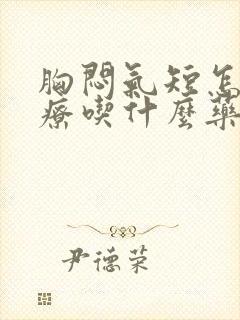 胸悶氣短怎
療喫什麼藥
尹德荣